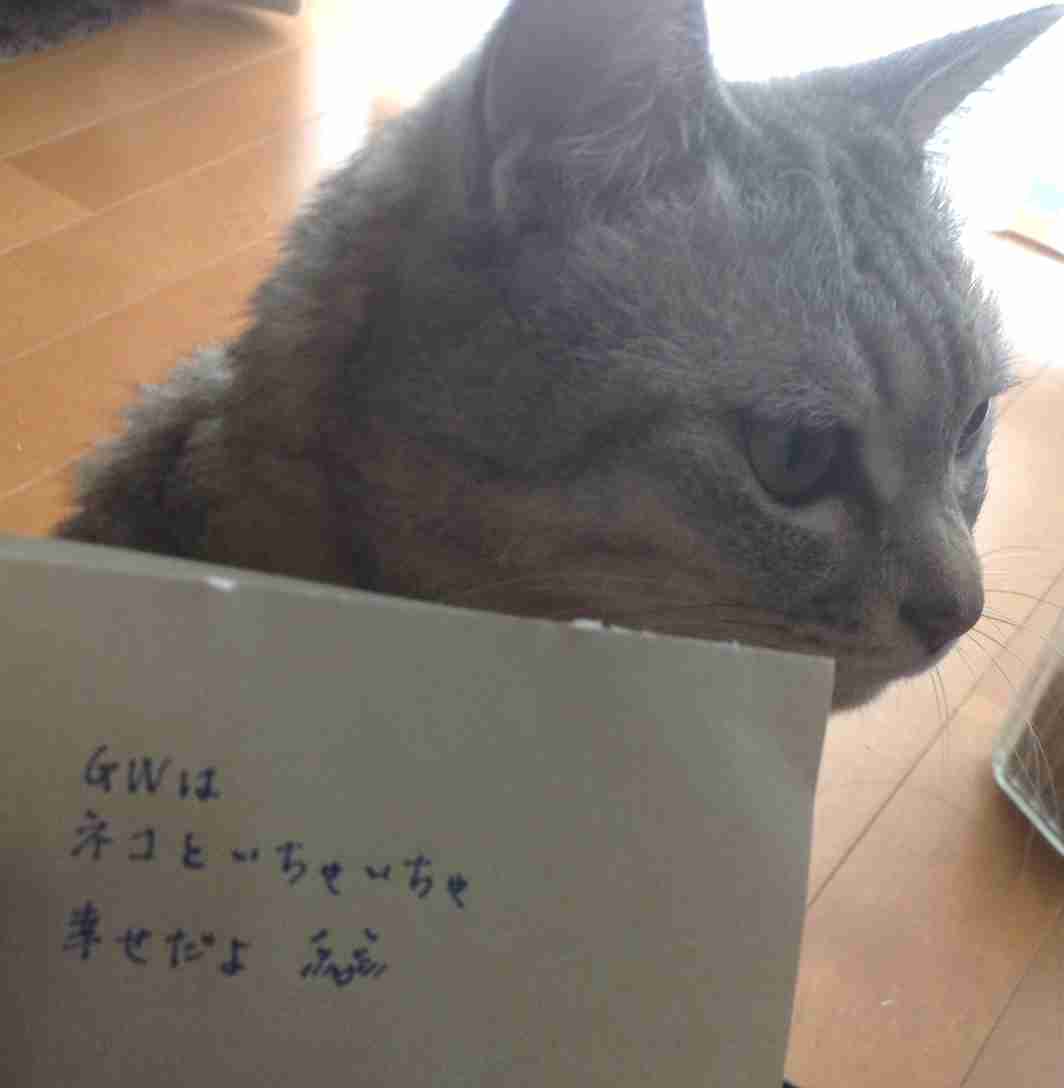 GWは
ネコといちゃいちゃ
幸せだよ